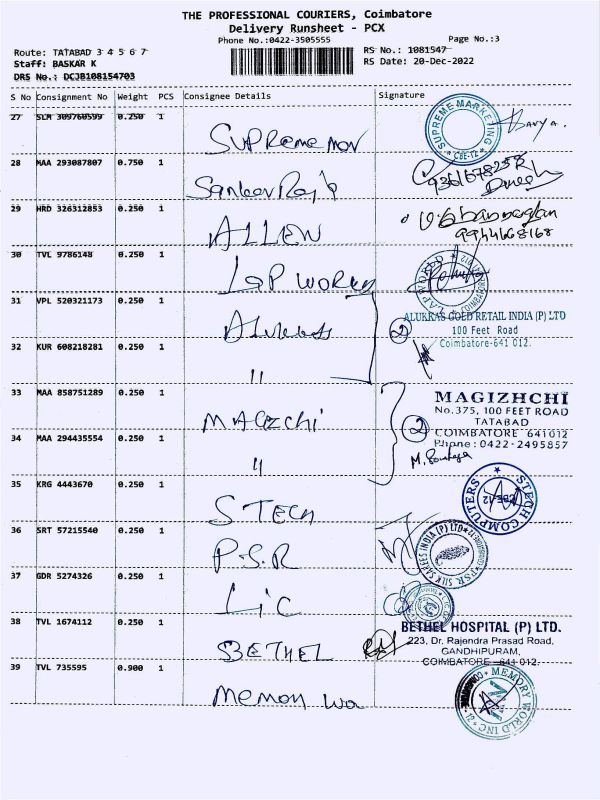 THE PROFESSIONAL COURIERS, Coimbatore
Delivery Runsheet - PCX
Phone No.:0422-3505555
Page No.:3
Route: TATABAD 3 4 5 6 7
RS No.: 1081547
Staff: BASKAR K
RS Date: 20-Dec-2022
DRS No.: DCJB108154703
S No Consignment No Weight PCS Consignee Details Signature
27 SLM 309760599 0.250 1
Supreme mar
SUPREME MARKETING
CBE-12
28 MAA 293087807 0.750 1
Dinesh
29 HRD 326312853 0.250 1
ALLEN
9944668168
30 TVL 9786148 0.250 1
LAP WORLD
COIMBATORE
31 VPL 520321173 0.250 1
Alukkas
2
ALUKKAS GOLD RETAIL INDIA (P) LTD
100 Feet Road
Coimbatore-641 012.
32 KUR 608218281 0.250 1
"
33 MAA 858751289 0.250 1
MAGIZCHI
2
MAGIZHCHI
No.375, 100 FEET ROAD
TATABAD
COIMBATORE 641012
Phone: 0422-2495857
34 MAA 294435554 0.250 1
"
35 KRG 4443670 0.250 1
S TECH
STECH COMPUTERS
CBE-12
36 SRT 57215540 0.250 1
P.S.R
PSR SILK SAREES INDIA (P) LTD
37 GDR 5274326 0.250 1
LIC
38 TVL 1674112 0.250 1
BETHEL
BETHEL HOSPITAL (P) LTD.
223, Dr. Rajendra Prasad Road,
GANDHIPURAM,
COIMBATORE - 641 012.
39 TVL 735595 0.900 1
Memory wo
MEMORY WORLD INC